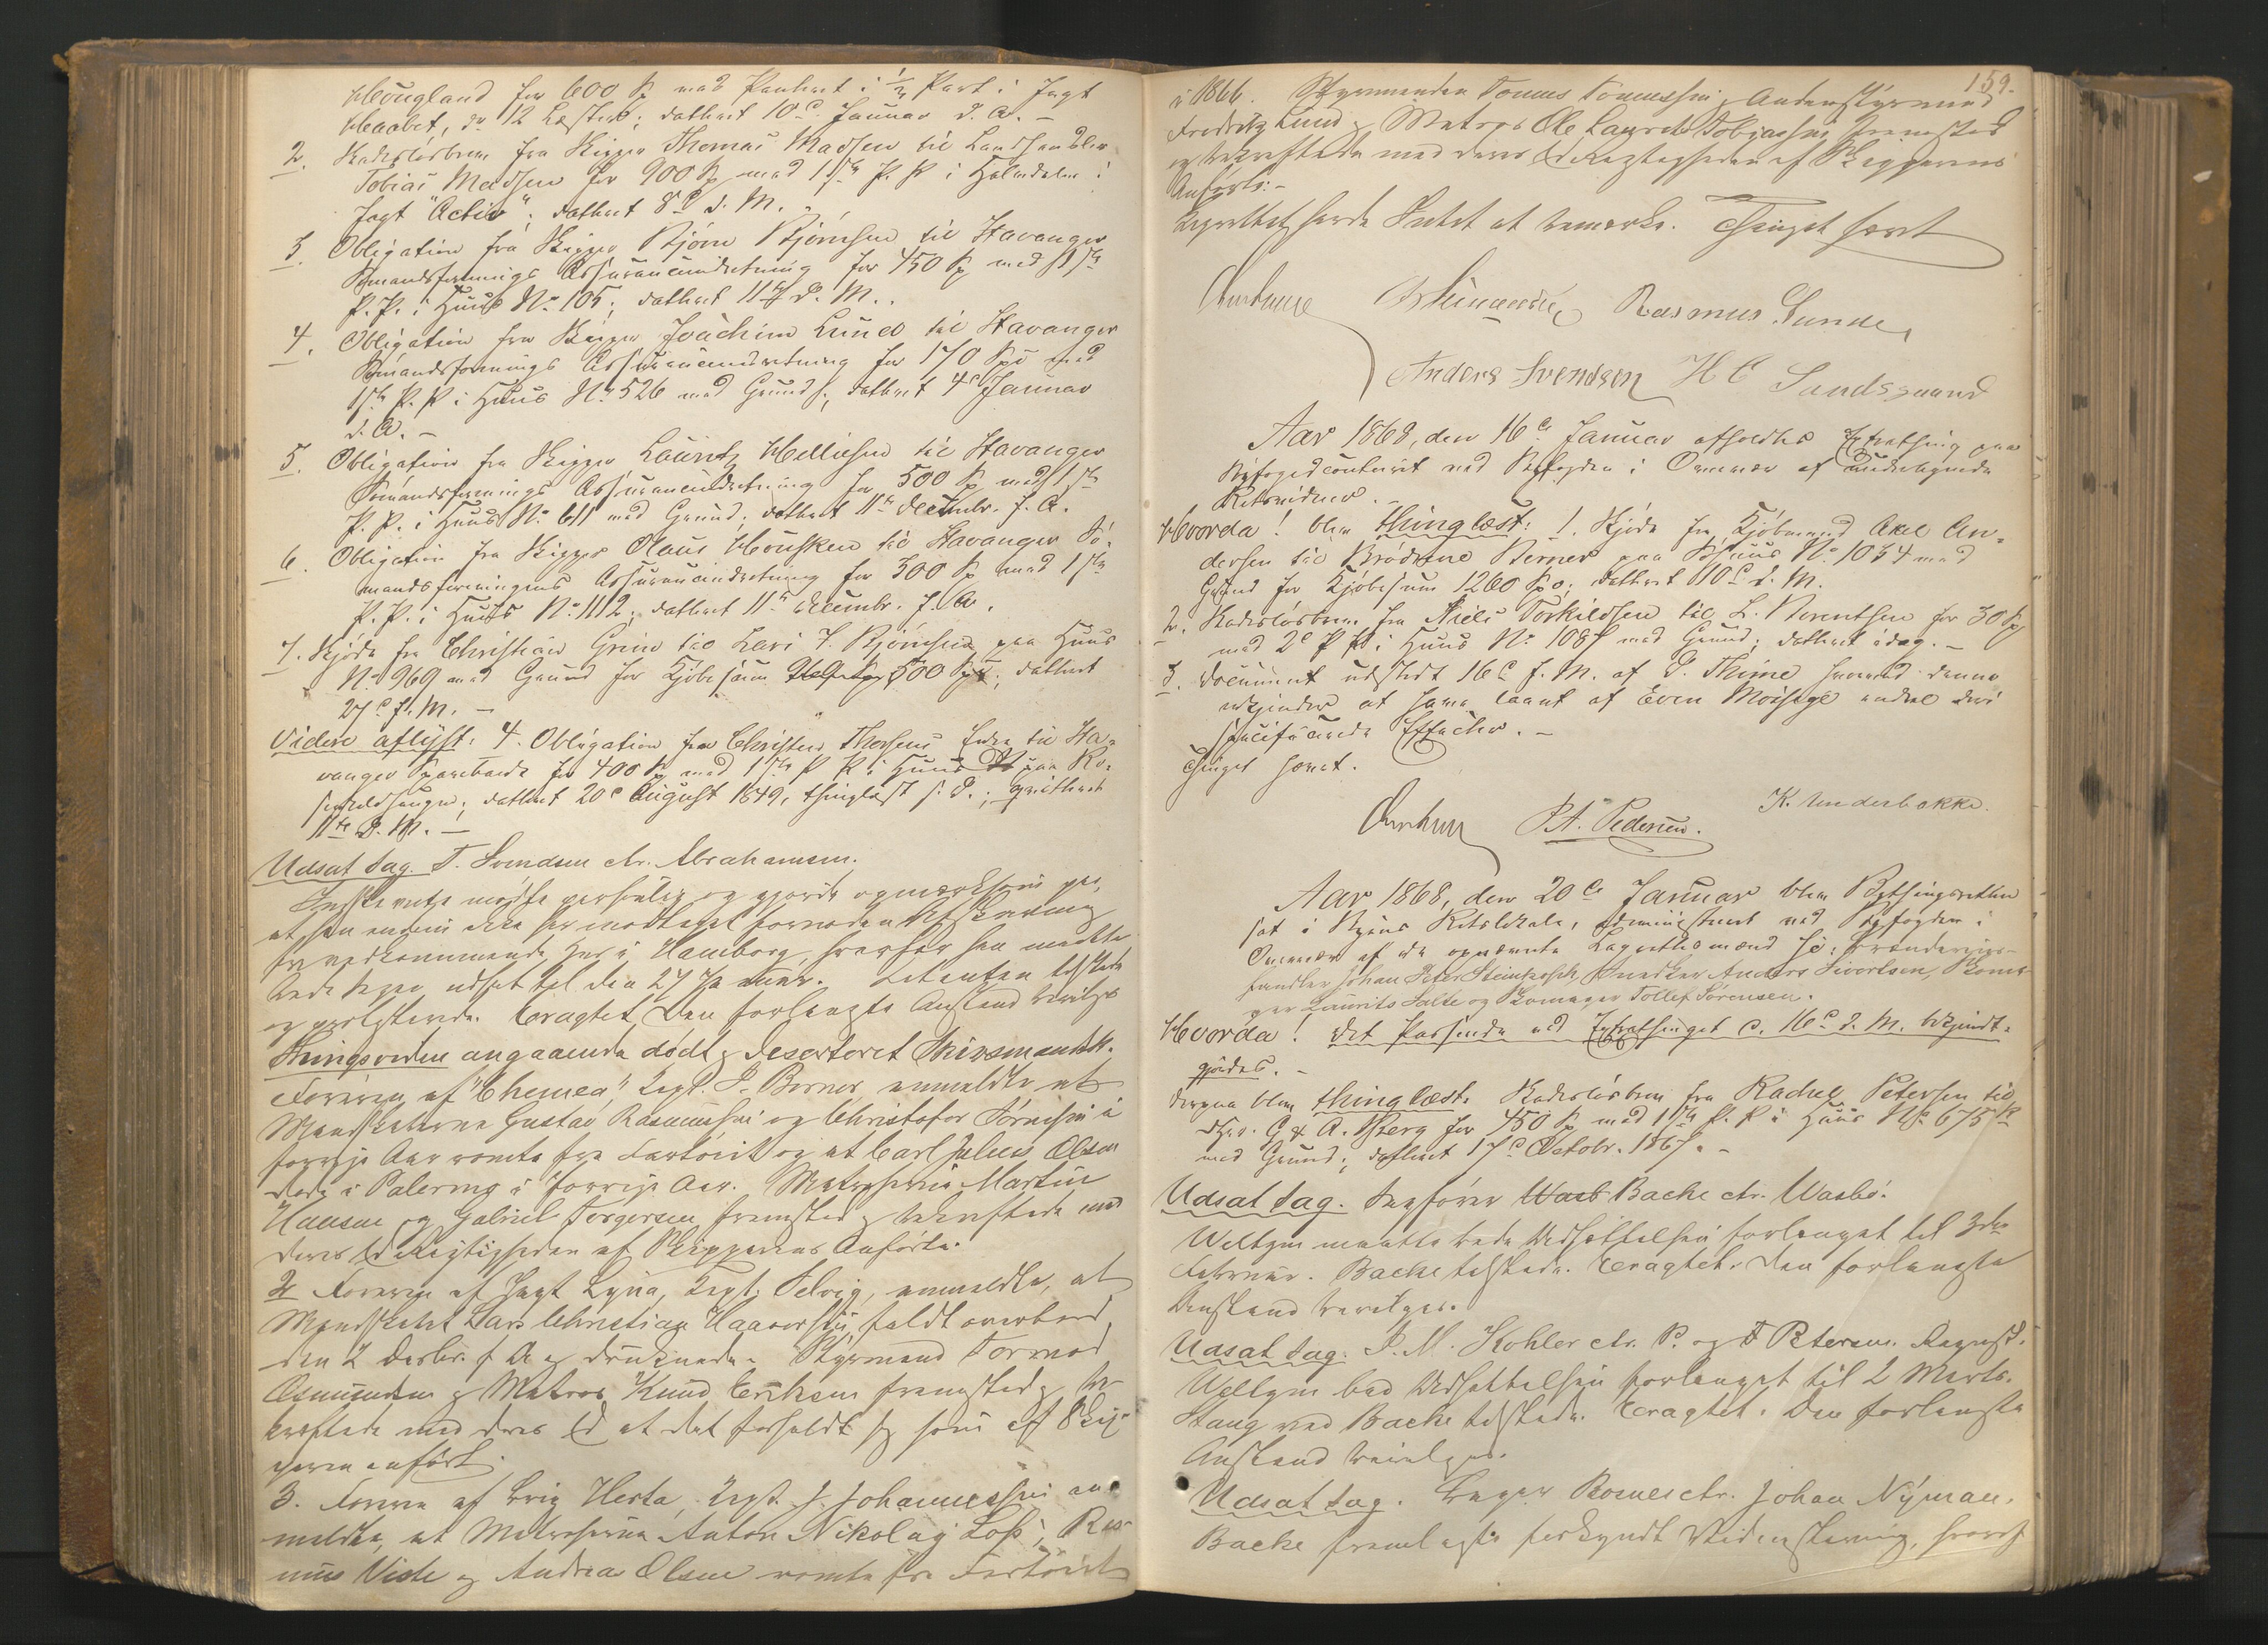 Hougland for 600 Sp med Panteret i 1/2 Part i Jagt
Haabet, dr. 12 Læster; dateret 10de Januar d. A. –
2. Skadesløsbrev fra Skipper Thomas Madsen til Landhandler
Tobias Madsen for 900 Sp med 1ste P. P. i
Jagt "Activ"; dateret 8de d. M.
3. Obligation fra Skipper Bjørn Bjørnsen til Stavanger
Sømandsforenings Assuranceindretning for 450 Sp med 1ste
P. P. i Huus No 105; dateret 11te d. M.
4. Obligation fra Skipper Joachim Lund til Stavanger
Sømandsforenings Assuranceindretning for 170 Spd med
1ste P. P. i Huus No 526 med Grund; dateret 4de Januar
d. A. –
5. Obligation fra Skipper Lauritz Helliesen til Stavanger
Sømandsforenings Assuranceindretning for 500 Sp med 1ste
P. P. i Huus No 611 med Grund; dateret 11te Decembr. f. A.
6. Obligation fra Skipper Olaus Housken til Stavanger Sø-
mandsforeningens Assuranceindretning for 300 Sp med 1ste
P. P. i Huus No 1112; dateret 11te Decembr. f. A.
7. Skjøde fra Christian Grim til Lars T. Bjørnsen paa Huus
No 969 med Grund for Kjøbesum 500 Spd; dateret
27de f. M. –
Videre aflyst: 4. Obligation fra Christen Thorsens Enke til Sta-
vanger Sparebank for 400 Sp med 1ste P. P. i Huus paa
dateret 20de August 1849, thinglæst s. D.; qvitteret
11te d. M. –
Udsat Sag. T. Svendsen ctr. Abrahamsen.
mødte personlig og gjorde opmærksom paa,
at han endnu ikke har modtaget fornøden Afskrivning
fra vedkommende Hus i Hamborg, hvorfor han maatte
bede Sagen udsat til den 27 Januar. tilstede
og protesterede. Eragtet Den forlangte Anstand bevilges
Thingsvidne angaaende dødt og deserteret Skibsmandsk.
Føreren af "Chemea", Kapt. P. Berner anmeldte at
Mandskaberne Gustav Rasmussen og Christofer Tørresen i
forrige Aar rømte fra Fartøiet og at Carl Julius Olsen
døde i Palermo i forrige Aar. Matroserne Martin
Hansen og Gabriel Torgersen fremstod og bekræftede med
deres Ed Rigtigheden af Skipperens Anførte.
2 Føreren af Jagt Lyna, Kapt. Selvig, anmeldte, at
Mandskabet Lars Christian Haaversen faldt overbord
den 2 Decbr. f. A. og druknede. Styrmand Tormod
Osmundsen og Matros Knud Eriksen fremstod og be-
kræftede med deres Ed at det forholdt sig som af Skip-
peren anført.
3. Føreren af Brig Herta, Kapt. J. Johannessen an-
meldte, at Matroserne Anton Nikolay Loss, Ras-
mus Viste og Andreas Olsen rømte fra Fartøiet
159.
i 1866. Styrmanden Tonnes Tønnessen, Andenstyrmand
Fredrik Lund og Matros Ole Laurits Tobiassen fremstod
og bekræftede med deres Ed Rigtigheden af Skipperens
Anførte. –
Lagrettet havde Intet at bemærke. Thinget hævet
Rasmus Sunde,
Anders Svendsen H C Sandsgaard
Aar 1868, den 16de Januar afholdtes Extrathing paa
Byfogedcontoiret ved Byfogden i Overvær af undertegnede
Retsvidner.
Hvorda! blev thinglæst: 1. Skjøde fra Kjøbmand Axel An-
dersen til Brødrene Berner paa Søhuus No 1034 med
Grund for Kjøbesum 1260 Spd; dateret 10de d. M.
2. Skadesløsbrev fra Niels Torkildsen til L. Berentsen for 30 Sp
med 2de P. P. i Huus No 1087 med Grund; dateret idag. –
3. Document udstedt 16de f. M. af P. Thime hvorved denne
erkjender at have laant af Even Moisige endel deri
specificerede Effecter. –
Thinget hævet.
P. A. Pedersen. K. Underbakke.
Aar 1868, den 20de Januar blev Bythingsretten
sat i Byens Retslokale, administreret ved Byfogden i
Overvær af de opnævnte Lagrettesmænd ɔ:
handler Johan Peter Steinkopff, Snedker Anders Sivertsen, Skoma-
ger Laurits Salte og Skomager Tollef Sørensen.
Hvorda! Det Passerede ved Extrathinget d. 16de d. M. bekjendt-
gjordes. –
Derpaa blev thinglæst. Skadesløsbrev fra Rachel Petersen til
Hrr. G & A. Berg for 450 Sp med 1ste P. P. i Huus No 675
med Grund; dateret 17de Octobr. 1867. –
Udsat Sag. Sagfører Bache ctr. Waabø.
maatte bede Udsættelsen forlænget til 3die
Februar. Bache tilstede. Eragtet. Den forlangte
Anstand bevilges.
Udsat Sag. P. M. Kohler ctr. P. og T Petersen.
bad Udsættelsen forlænget til 2 Marts.
Stang ved Bache tilstede. Eragtet. Den forlangte
Anstand bevilges.
Udsat Sag. ctr. Johan Nyman.
Bache fremlagde forkyndt hvoraf